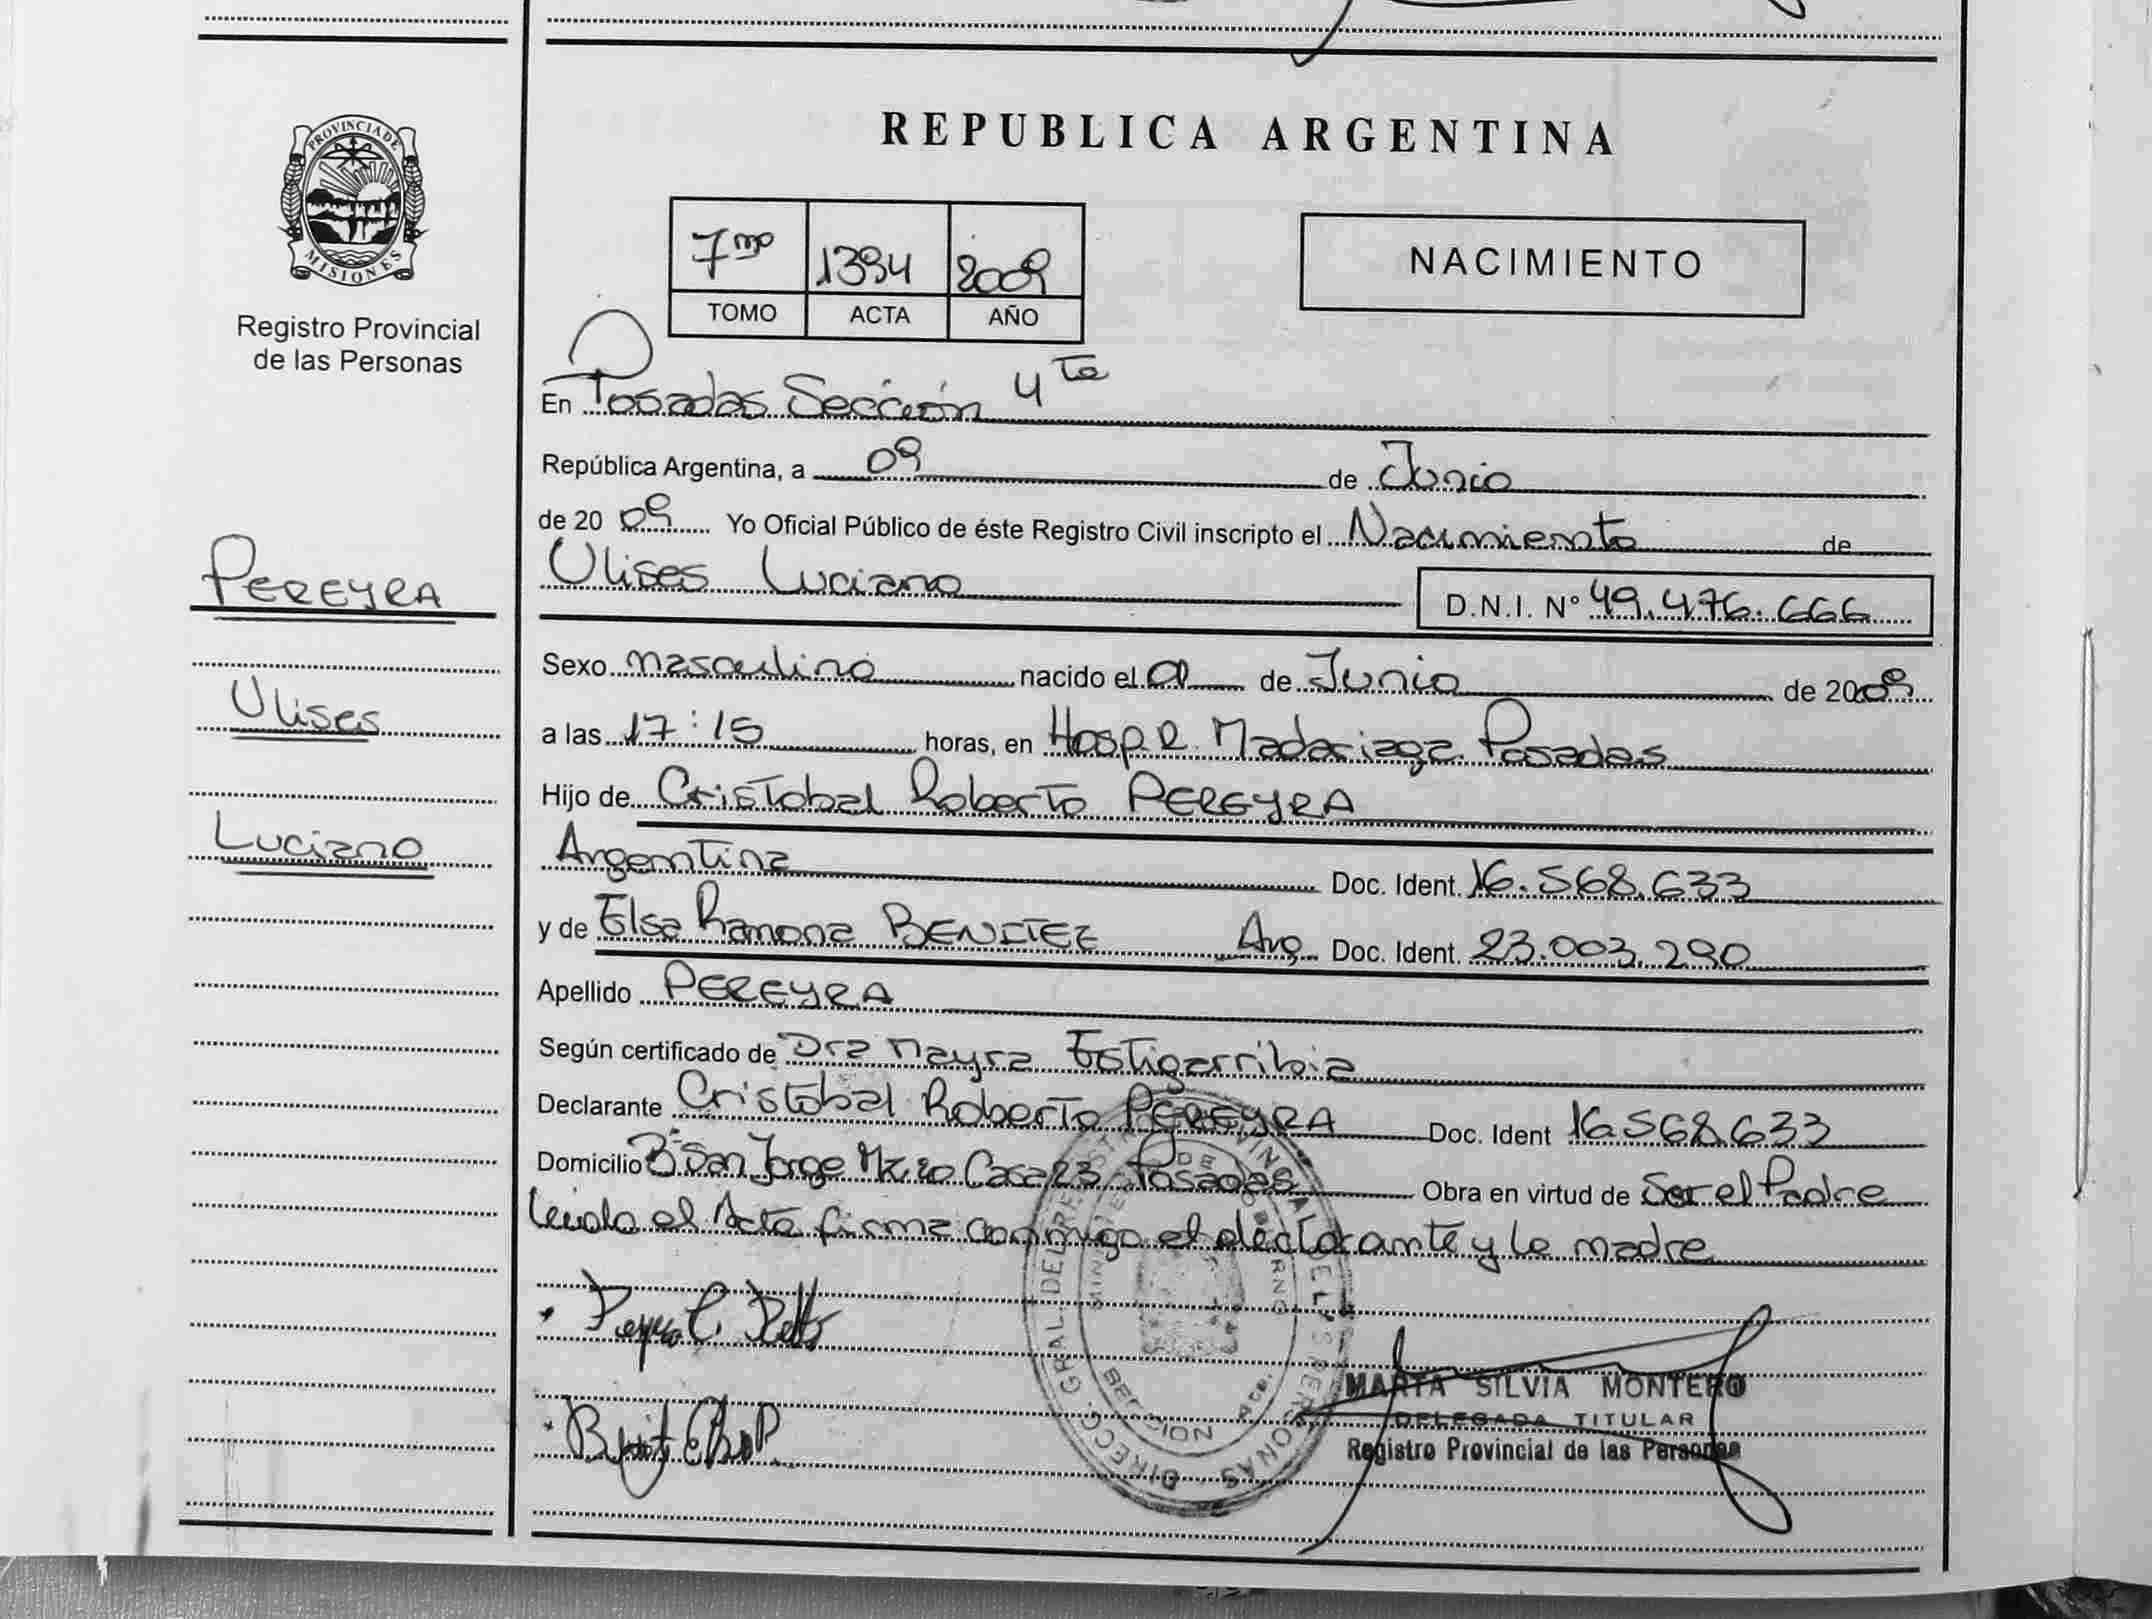 PROVINCIA DE
MISIONES
Registro Provincial
de las Personas
REPUBLICA ARGENTINA
7mo 1394 2009
TOMO ACTA AÑO
NACIMIENTO
En Posadas Sección 4ta
República Argentina, a 09 de Junio
de 2009 Yo Oficial Público de éste Registro Civil inscripto el Nacimiento de
PEREYRA
Ulises Luciano D.N.I. N° 49.476.666
Sexo masculino nacido el 01 de Junio de 2009
Ulises
a las 17:15 horas, en Hosp. R. Madariaga. Posadas
Hijo de Cristobal Roberto PEREYRA
Luciano
Argentina Doc. Ident. 16.568.633
y de Elsa Ramona BENITEZ Arg. Doc. Ident. 23.003.290
Apellido PEREYRA
Según certificado de Dra Mayra Estigarribia
Declarante Cristobal Roberto PEREYRA Doc. Ident 16.568.633
Domicilio B° San Jorge Casa 23 Posadas Obra en virtud de Ser el Padre
leida el Acta firma conmigo el declarante y la madre
DIRECC. GRAL. DEL REGISTRO PROVINCIAL DE LAS PERSONAS
MINISTERIO DE GOBIERNO
SECCION 4ta.
MARTA SILVIA MONTERO
DELEGADA TITULAR
Registro Provincial de las Personas